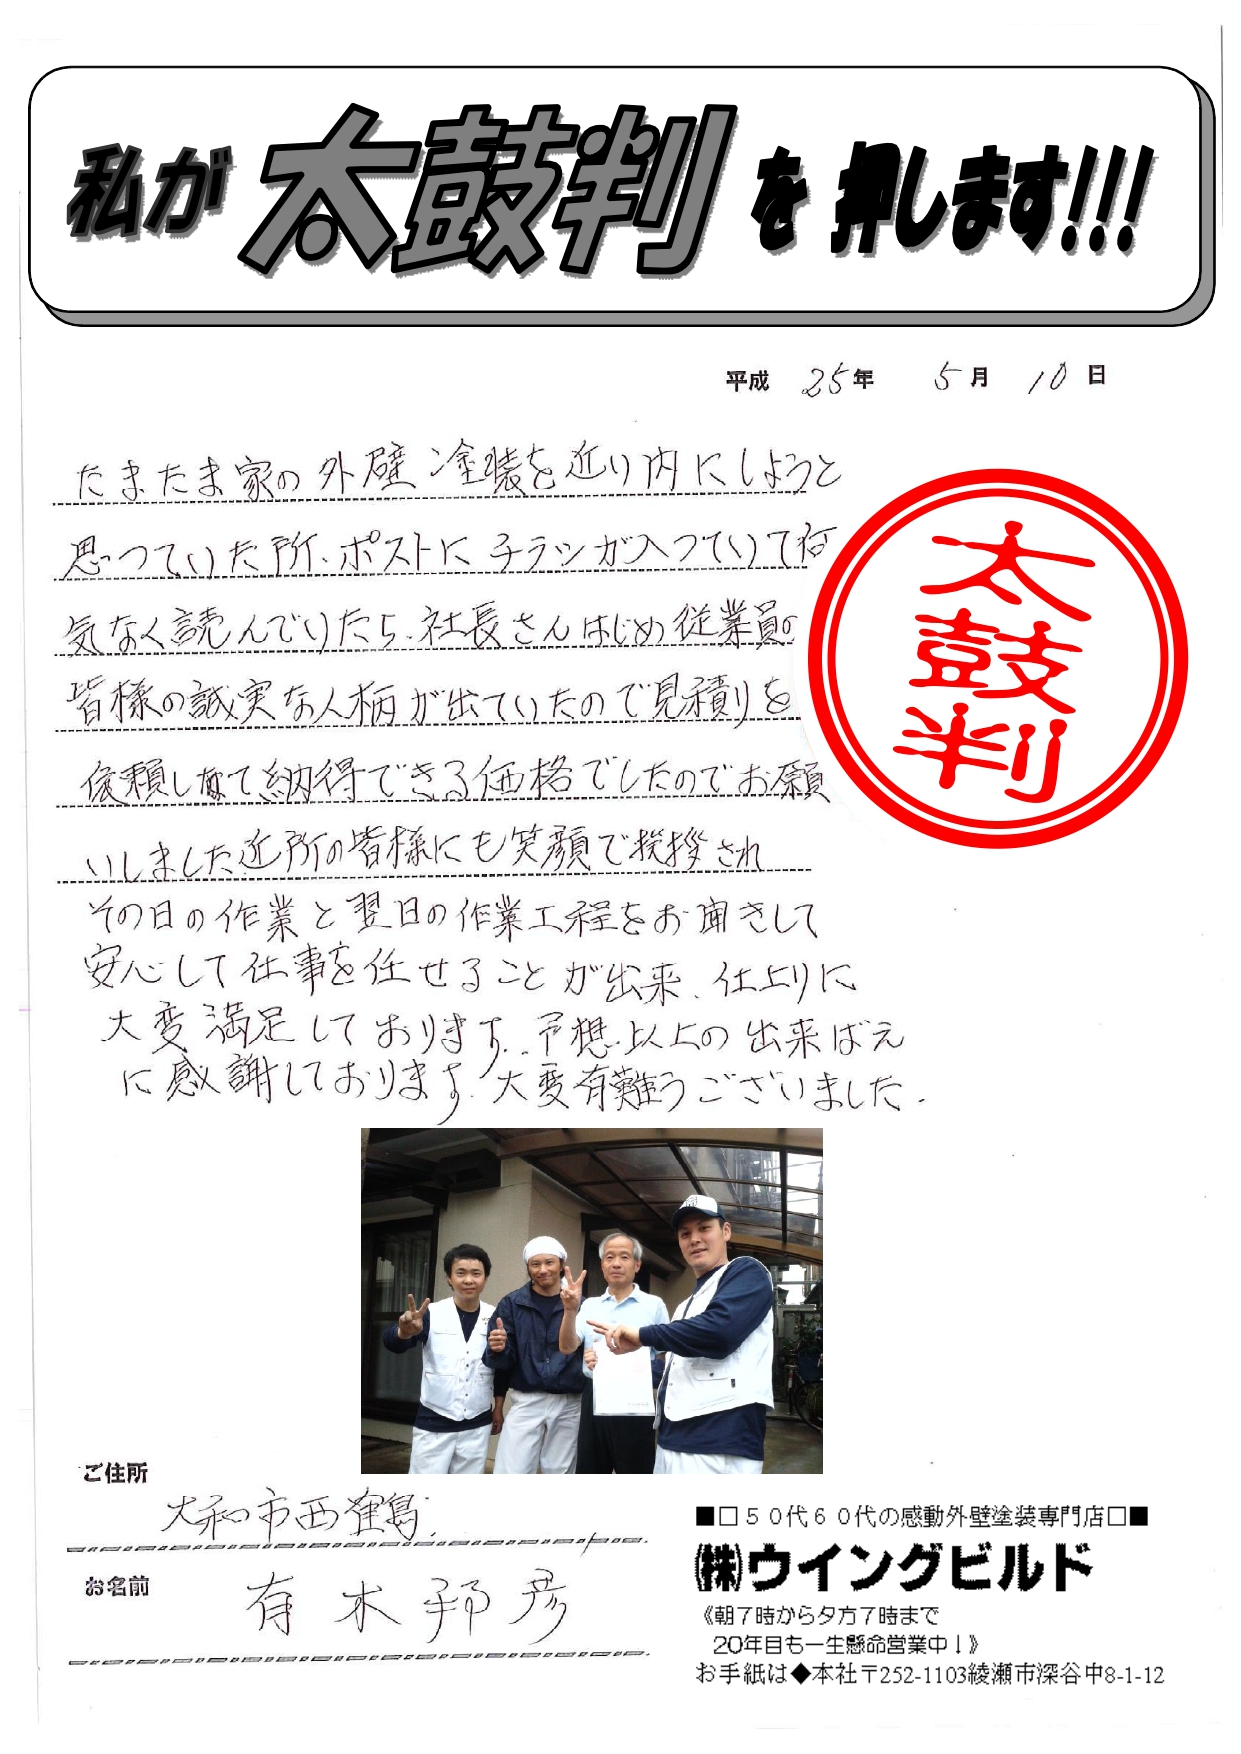 私が太鼓判を押します!!!
平成 25年 5月 10日
たまたま家の外壁塗装を近り内にしようと
思っていた所、ポストにチラシが入っていて何
気なく読んでいたら、社長さんはじめ従業員の
皆様の誠実な人柄が出ていたので見積りを
依頼して納得できる価格でしたのでお願
いしました近所の皆様にも笑顔で挨拶され
その日の作業と翌日の作業工程をお聞きして
安心して仕事を任せることが出来、仕上りに
大変満足しております。予想以上の出来ばえ
に感謝しております。大変有難うございました.
太鼓判
ご住所
大和市西鶴間
お名前
有木邦彦
■□50代60代の感動外壁塗装専門店□■
㈱ウイングビルド
《朝7時から夕方7時まで
20年目も一生懸命営業中!》
お手紙は◆本社〒252-1103綾瀬市深谷中8-1-12